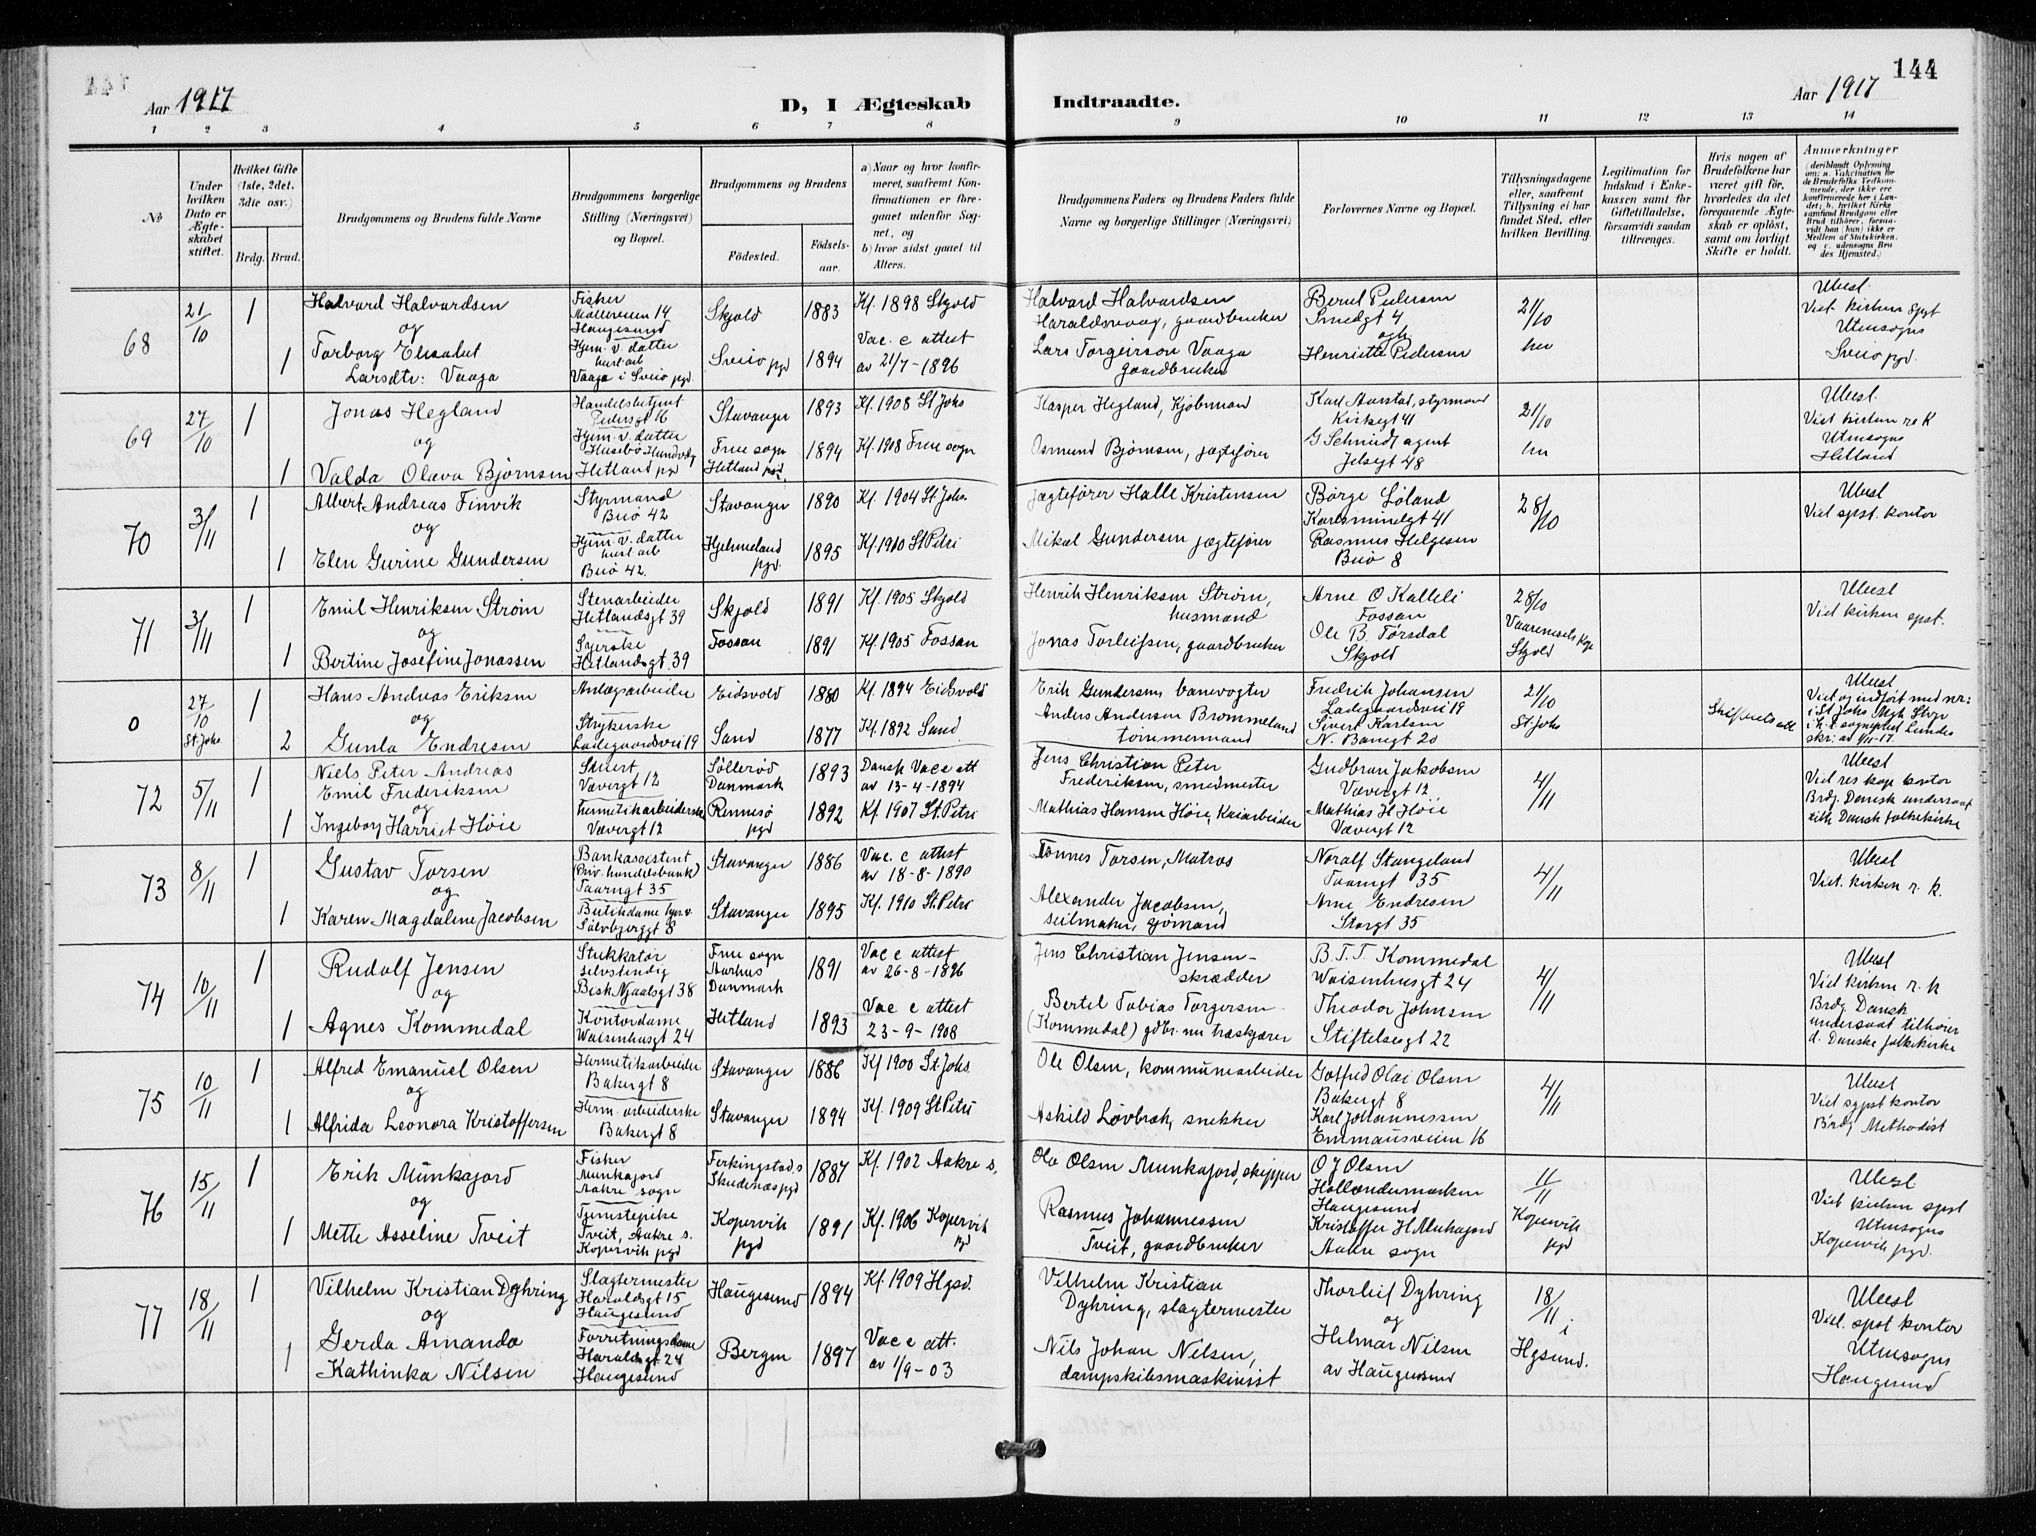 144
Aar 1917
D, I Ægteskab Indtraadte.
Aar 1917
1 2 3 4 5 6 7 8 9 10 11 12 13 14
No
Under hvilken Dato er Ægteskabet stiftet.
Hvilket Gifte (1ste, 2det, 3die osv.)
Brdg. Brud.
Brudgommens og Brudens fulde Navne
Brudgommens borgerlige Stilling (Næringsvei) og Bopæl.
Brudgommens og Brudens
Födested.
Födselsaar.
a) Naar og hvor konfirmeret, saafremt Konfirmationen er foregaaet udenfor Sognet, og
b) hvor sidst gaaet til Alters.
Brudgommens Faders og Brudens Faders fulde Navne og borgerlige Stillinger (Næringsvei)
Forlovernes Navne og Bopæl.
Tillysningsdagene eller, saafremt Tillysning ei har fundet Sted, efter hvilken Bevilling.
Legitimation for Indskud i Enkekassen samt for Giftetilladelse, forsaavidt saadan tiltrænges.
Hvis nogen af Brudefolkene har været gift för, hvorledes da det foregaaende Ægteskab er oplöst, samt om lovligt Skifte er holdt.
Anmærkninger
(deriblandt Oplysning om: a. Vakcination for de Brudefolks Vedkommende, der ikke ere konfirmerede her i Landet; b. hvilket Kirkesamfund Brudgom eller Brud tilhörer, forsaavidt han (hun) ikke er Medlem af Statskirken, og c. udensogns Brudes Hjemsted.)
68
21/10
1
Halvard Halvardsen
og
1
Torborg Elisabet
Larsdtr: Vaaga
Fisker
Møllerveien 14
Haugesund
Hjem. v. datter
husl arb
Vaaga i Sveio pgd
Skjold 1883
Sveio pgd 1894
Kf. 1898 Skjold
Vac. c attest
av 21/7 - 1896
Halvard Halvardsen
Haraldsvaag, gaardbruker
Lars Torgeirson Vaaga
gaardbruker
Bernt Pedersen
Smedgt 4
og
Henriette Pedersen
21/10
her
Ubesl.
Viet kirken spst
Utensogns
Sveio pgd.
69
27/10
1
Jonas Hegland
og
1
Valda Olava Bjørnsen
Handelsbetjent
Pedersgt 16
Hjem. v. datter
Husebø Hundvåg
Hetland pgd
Stavanger 1893
Frue sogn
Hetland pgd. 1894
Kf. 1908 St Johs
Kf. 1908 Frue sogn
Kasper Hegland, Kjøbmand
Osmund Bjørnsen, jægtefører
Karl Aarstad, styrmand
Kirkegt 41
G Schmidt agent
Jelsegt 48
21/10
her
Ubesl.
Viet kirken re K
Utensogns
Hetland
70
3/11
1
Albert Andreas Finvik
og
1
Elen Gurine Gundersen
Styrmand
Buö 42
Hjem. v. datter
husl arb
Buö 42.
Stavanger 1890
Hjelmeland pgd. 1895
Kf. 1904 St Johs.
Kf. 1910 St Petri
Jægtefører Halle Kristensen
Mikal Gundersen jægtefører
Børge Søland
Karlsminnegt 41
Rasmus Helgesen
Buö 8
28/10
Ubesl
Viet spst. kontor
71
3/11
1
Emil Henriksen Strøm
og
1
Bertine Josefine Jonassen
Stenarbeider
Hetlandsgt 39
Syerske
Hetlandsgt. 39
Skjold 1891
Fossan 1891
Kf. 1905 Skjold
Kf. 1905 Fossan
Henrik Henriksen Strøm,
husmand
Jonas Torleifsen, gaardbruker
Arne O Kalleli
Fossan
Ole B. Tørsdal
Skjold
28/10
Skjold
Ubesl
Viet kirken spst.
0
27/10
St. Johs.
1
Hans Andreas Eriksen
og
2
Gunla Endresen
Anlægsarbeider
Strykerske
Ladegaardsvei 19
Eidsvold 1880
Sand 1877
Kf. 1894 Eidsvold
Kf. 1892 Sand
Erik Gundersen banevogter
Anders Andersen Brommeland
tømmermand
Fredrik Johansen
Ladegaardsvei 19
Sivert Karlsen
N. Banegt 20
21/10
St Johs
Skifteretsatt
Ubesl
Viet og indført med nr:
i St Johs Mgh Stvgr
i h. t. sogneprest Lundes
skr: av 1/11-17
72
5/11
1
Niels Peter Andreas
Emil Frederiksen
og
1
Ingeborg Harriet Høie
Skuert
Vævergt 12
hermetikarbeiderske
Vævergt 12
Søllerød
Danmark 1893
Rennesø
pgd 1892
Dansk Vac c att
av 13-4-1894
Kf. 1907 St. Petri
Jens Christian Peter
Frederiksen, smedmester
Mathias Hansen Høie, Kaiarbeider
Gudbran Jakobsen
Vævergt 12
Mathias H Høie
Vævergt 12
4/11
Ubesl
Viet res kap kontor
Brdg. Dansk undersaat
tilh Dansk folkekirke
73
8/11
1
Gustav Torsen
og
1
Karen Magdaline Jacobsen
Bankassistent
(Priv. handelsbank)
Taarngt 35
Butikdame hjm v.
Sølvbjerggt 8
Stavanger 1886
Stavanger 1895
Vac. c attest
av 18-8-1890
Kf. 1910 St. Petri
Tønnes Torsen, Matros
Alexander Jacobsen,
seilmaker, sjømand
Noralf Stangeland
Taarngt 35
Arne Endresen
Storgt 35
4/11
Ubesl
Viet. kirken r. k.
74
10/11
1
Rudolf Jensen
og
1
Agnes Kommedal
Stukkatør
selvstendig
Bisk Njaalsgt 38
Kontordame
Waisenhusgt 24
Frue sogn
Aarhus
Danmark 1891
Hetland 1893
Vac c attest
av 26-8-1896
Vac c attest
23-9-1908
Jens Christian Jensen
skrædder
Bertel Tobias Torgersen
(Kommedal) gdbr. nu træskjærer
B. T. T. Kommedal
Waisenhusgt 24
Theodor Johnsen
Stiftelsesgt 22
4/11
Ubesl
Viet kirken r. k
Brdg. Dansk
undersaat tilhører
d. Danske folkekirke
75
10/11
1
Alfred Emanuel Olsen
og
1
Alfrida Leonora Kristoffersen
Hermetikarbeider
Bakergt 8
Herm. arbeiderske
Bakergt 8
Stavanger 1886
Stavanger 1894
Kf 1900 St Johs
Kf. 1909 St Petri
Ole Olsen, kommunearbeider
Askild Løvbrek, snekker
Gotfred Olai Olsen
Bakergt 8
Karl Johannessen
Emmausveien 16
4/11
Ubesl
Viet sgpst kontor
Brdg Methodist
76
15/11
1
Erik Munkajord
og
1
Mette Asseline Tveit
Fisker
Munkajord
Aakre sogn
Tjenstepike
Tveit, Aakre s.
Kopervik pgd
Ferkingstad s
Skudenæs pgd 1887
Kopervik
pgd 1891
Kf. 1902 Aakre s.
Kf. 1906 Kopervik
pgd
Ola Olsen Munkajord, skipper
Rasmus Johannessen
Tveit, gaardbruker
O J Olsen
Hollendermarken
Haugesund
Kristoffer H. Munkajord
Aakre sogn
11/11
Kopervik
pgd
Ubesl
Viet kirken spst
Utensogns
Kopervik pgd.
77
18/11
1
Vilhelm Kristian Dyhring
og
1
Gerda Amanda
Kathinka Nilsen
Slagtermester
Haraldsgt 15
Haugesund
Forretningsdame
Haraldsgt 24
Haugesund
Haugesund 1894
Bergen 1897
Kf. 1909 Hgsd.
Vac c att.
av 1/9-03
Vilhelm Kristian
Dyhring, slagtermester
Nils Johan Nilsen,
dampskibsmaskinist
Thorleif Dyhring
og
Helmar Nilsen
av Haugesund
18/11 i
Hgsund.
Ubesl
Viet. spst kontor
Utensogns
Haugesund